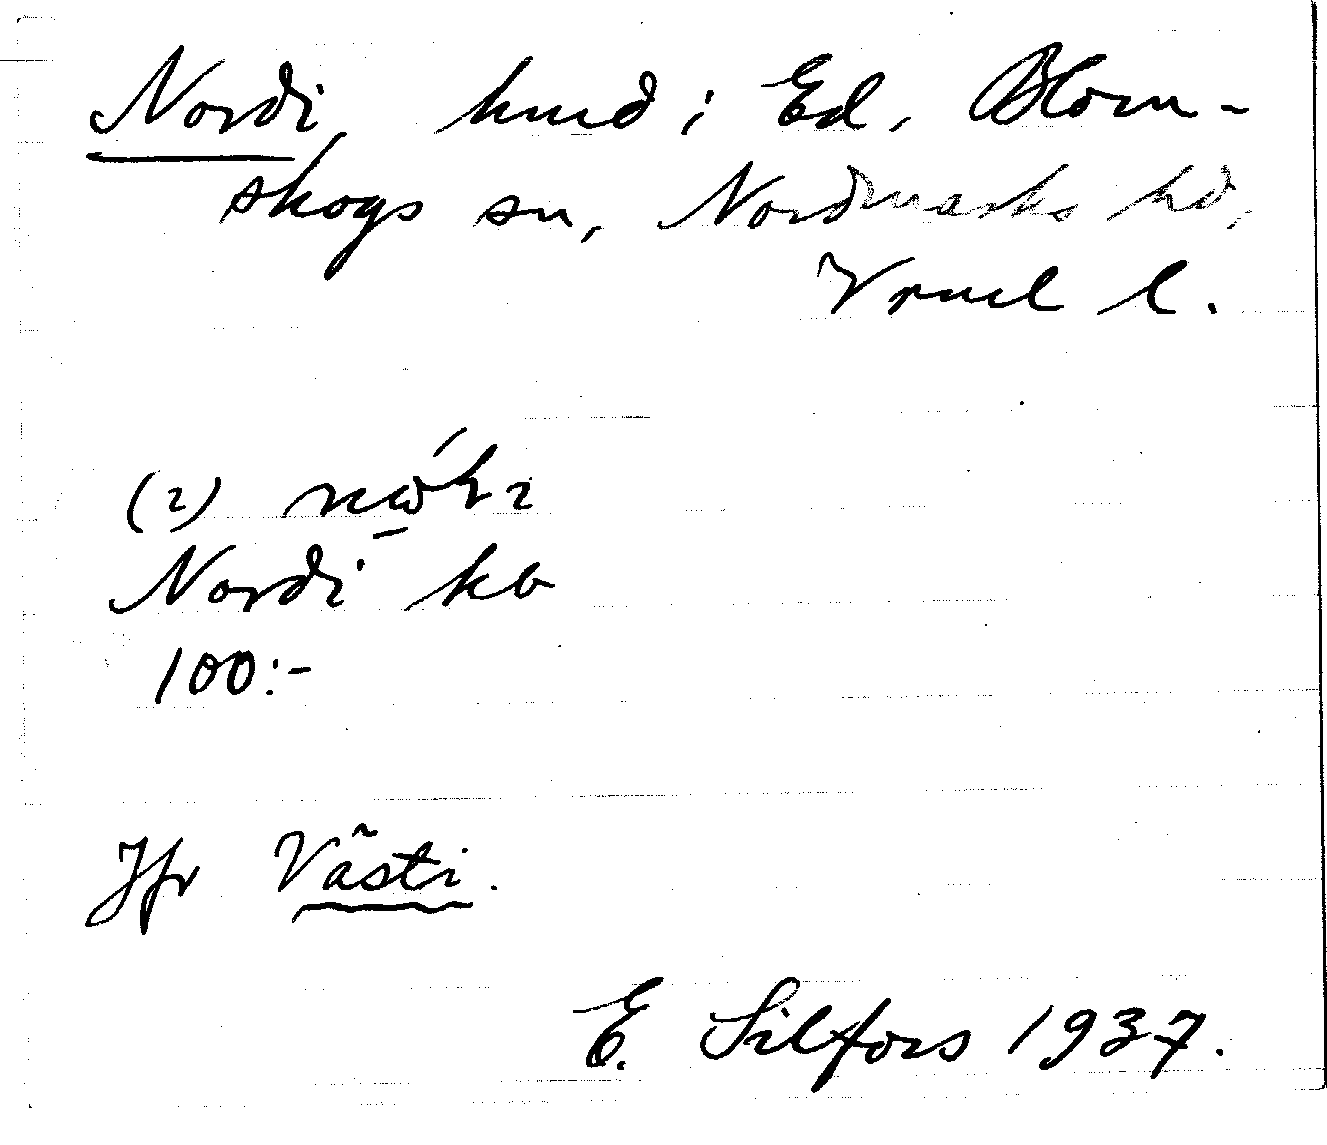 Nordi, hmd i Ed, Blom-
skogs sn, Nordmarks hd,
Vrml l.
(2)
Nordi ko
100:-
Jfr Västi.
E. Silfors 1937.